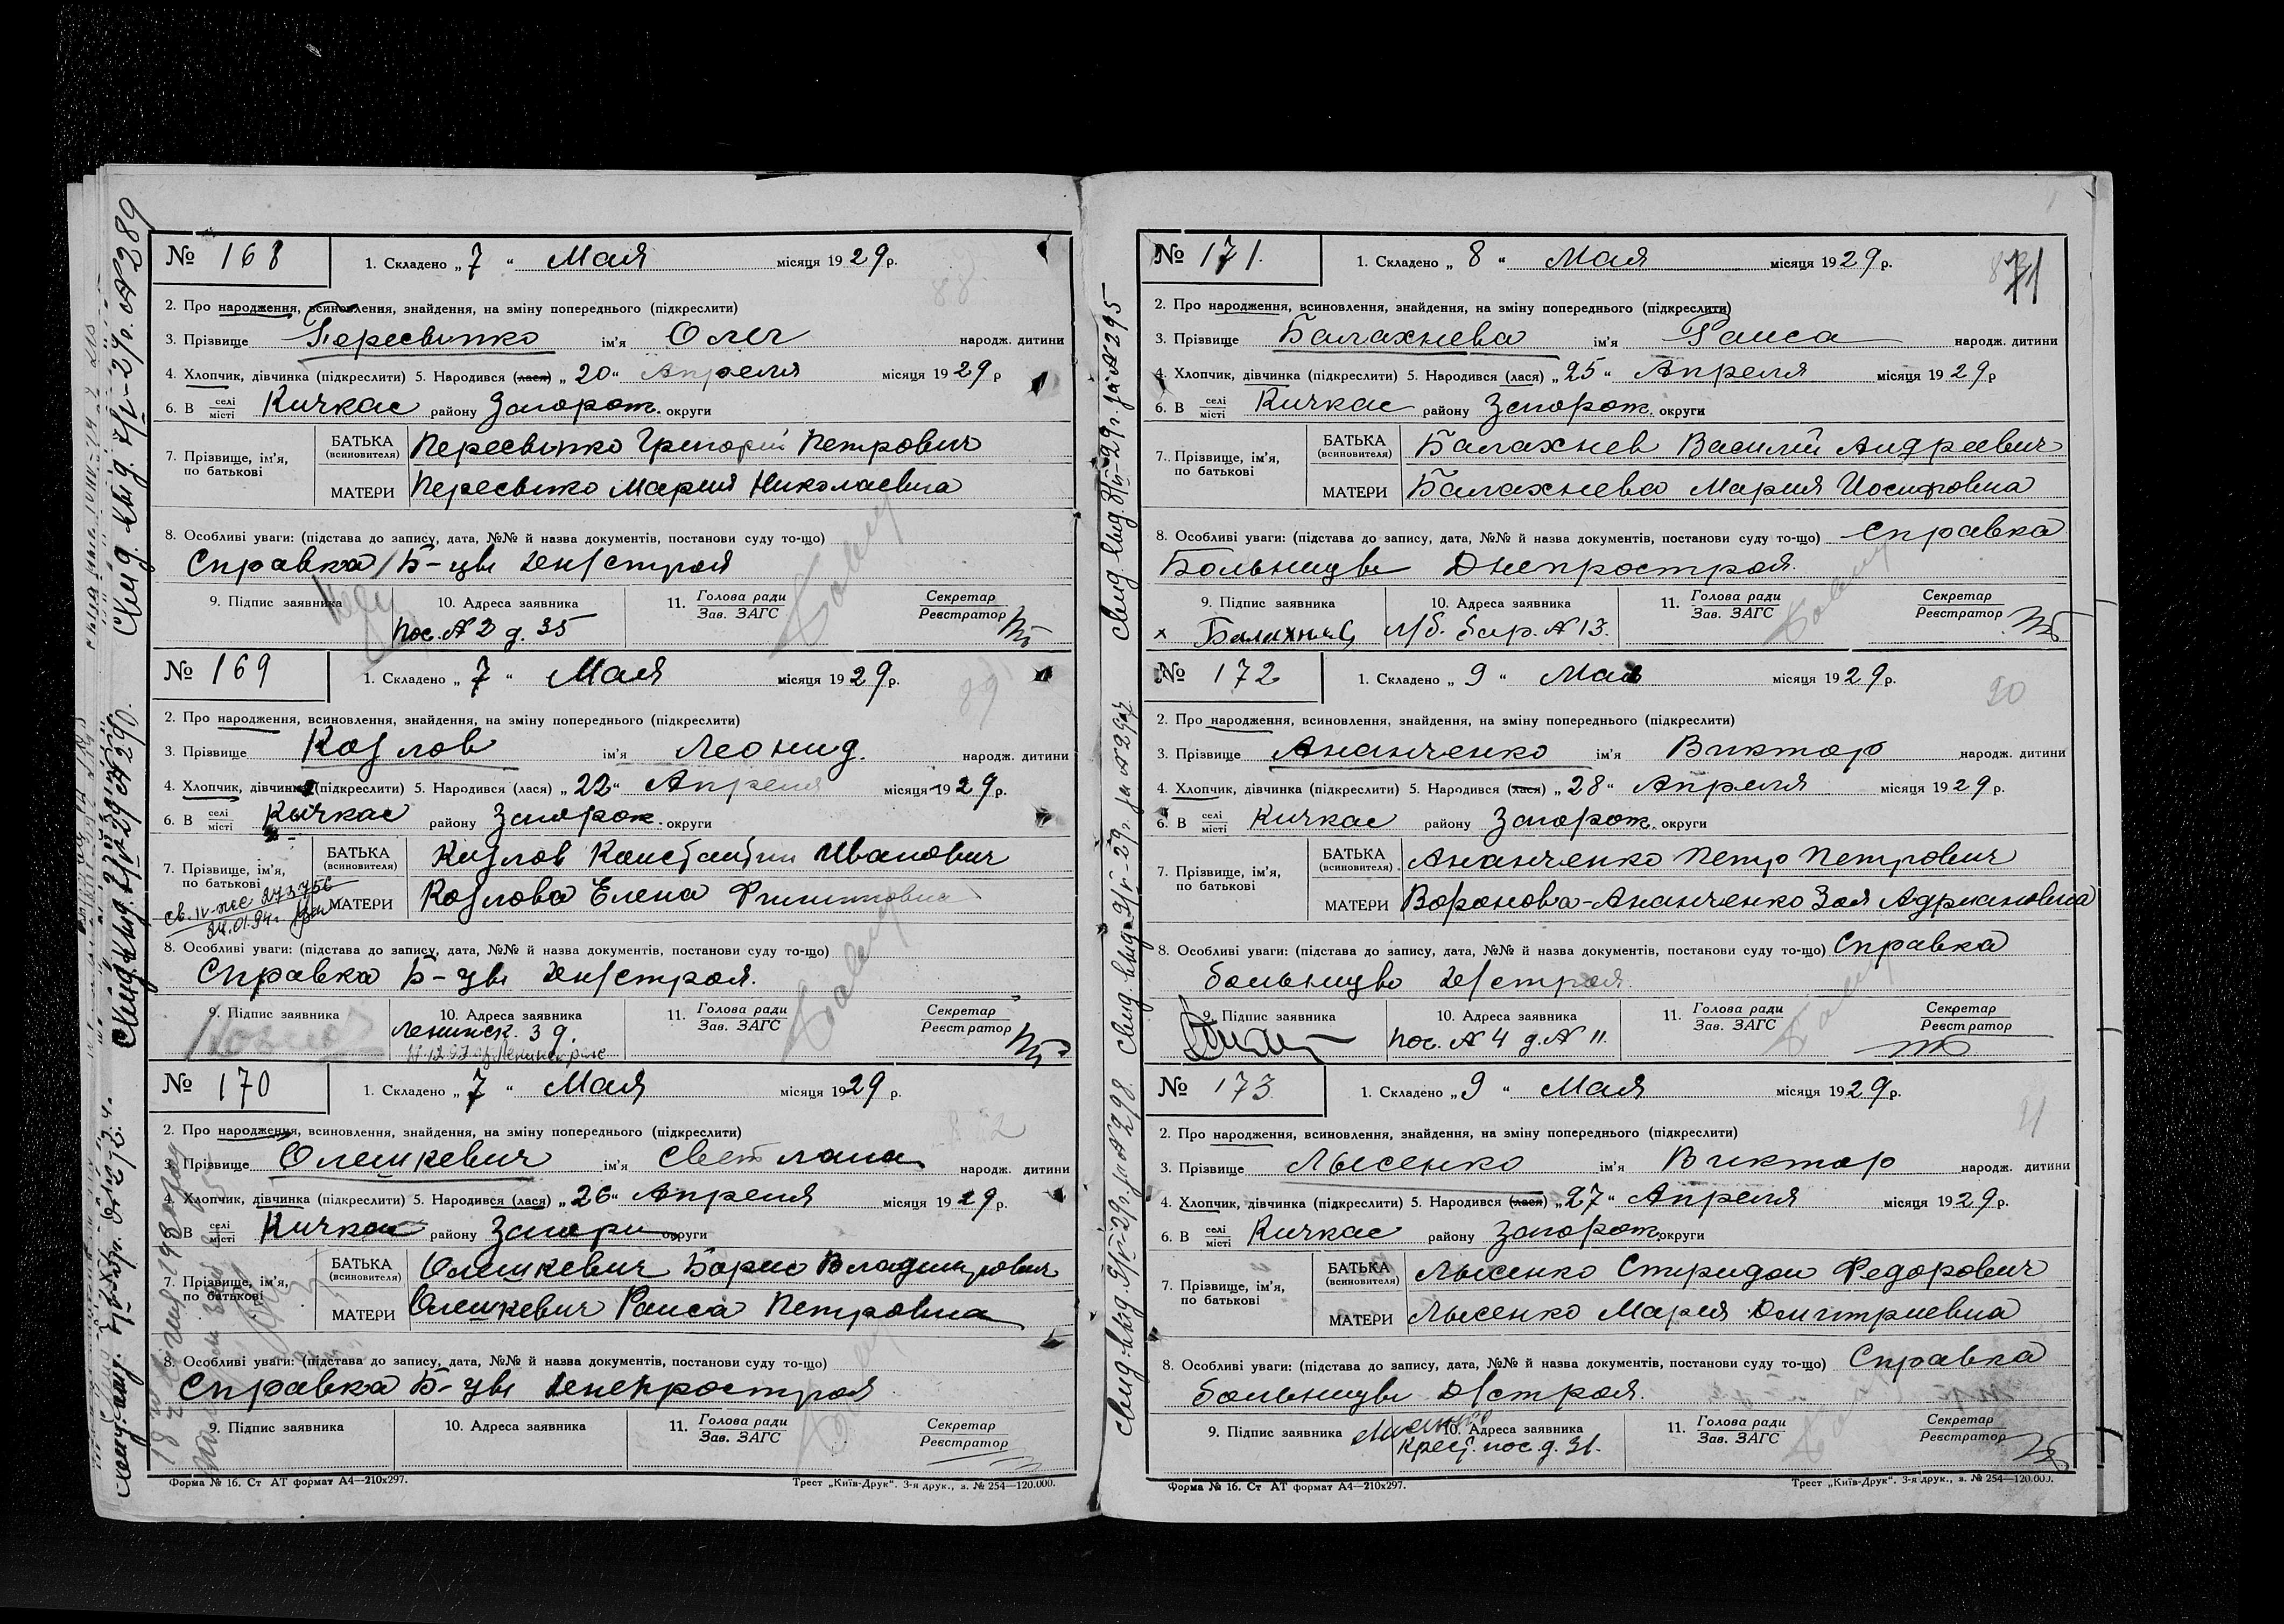 № 168 1. Складено „ 7 “ Мая місяця 1929 р.
2. Про народження, всиновлення, знайдення, на зміну попереднього (підкреслити)
3. Прізвище Пересыпко ім'я Олег народж. дитини
4. Хлопчик, дівчинка (підкреслити) 5. Народився (лася) „ 20 “ Апреля місяця 1929 р
6. В селі місті Кичкас району Запорож. округи
7. Прізвище, ім'я, по батькові
БАТЬКА (всиновителя) Пересыпко Григорий Петрович
МАТЕРИ Пересыпко Мария Николаевна
8. Особливі уваги: (підстава до запису, дата, №№ й назва документів, постанови суду то-що)
Справка Б-цы
9. Підпис заявника 10. Адреса заявника 11. Голова ради Зав. ЗАГС Секретар Реєстратор
пос. № 2 д. 35
№ 169 1. Складено „ 7 “ Мая місяця 1929 р.
2. Про народження, всиновлення, знайдення, на зміну попереднього (підкреслити)
3. Прізвище Козлов ім'я Леонид. народж. дитини
4. Хлопчик, дівчинка (підкреслити) 5. Народився (лася) „ 22 “ Апреля місяця 1929 р.
6. В селі місті Кичкас району Запорож. округи
7. Прізвище, ім'я, по батькові
БАТЬКА (всиновителя) Козлов Константин Иванович
МАТЕРИ Козлова Елена Филипповна
8. Особливі уваги: (підстава до запису, дата, №№ й назва документів, постанови суду то-що)
Справка Б-цы
9. Підпис заявника 10. Адреса заявника 11. Голова ради Зав. ЗАГС Секретар Реєстратор
Козлов Ленинск. 39.
№ 170 1. Складено „ 7 “ Мая місяця 1929 р.
2. Про народження, всиновлення, знайдення, на зміну попереднього (підкреслити)
3. Прізвище Олешкевич ім'я Светлана народж. дитини
4. Хлопчик, дівчинка (підкреслити) 5. Народився (лася) „ 26 “ Апреля місяця 1929 р.
6. В селі місті Кичкас району округи
7. Прізвище, ім'я, по батькові
БАТЬКА (всиновителя) Олешкевич Борис Владимирович
МАТЕРИ Олешкевич Раиса Петровна
8. Особливі уваги: (підстава до запису, дата, №№ й назва документів, постанови суду то-що)
Справка Б-цы
9. Підпис заявника 10. Адреса заявника 11. Голова ради Зав. ЗАГС Секретар Реєстратор
Форма № 16. Ст АТ формат А4—210х297. Трест „Київ-Друк“. 3-я друк., з. № 254—120.000.
71
№ 171. 1. Складено „ 8 “ Мая місяця 1929 р.
2. Про народження, всиновлення, знайдення, на зміну попереднього (підкреслити)
3. Прізвище Балахнева ім'я Раиса народж. дитини
4. Хлопчик, дівчинка (підкреслити) 5. Народився (лася) „ 25 “ Апреля місяця 1929 р
6. В селі місті Кичкас району Запорож. округи
7. Прізвище, ім'я, по батькові
БАТЬКА (всиновителя) Балахнев Василий Андреевич
МАТЕРИ Балахнева Мария Иосифовна
8. Особливі уваги: (підстава до запису, дата, №№ й назва документів, постанови суду то-що) Справка
Больницы Днепростроя.
9. Підпис заявника 10. Адреса заявника 11. Голова ради Зав. ЗАГС Секретар Реєстратор
х Балахнев бар. № 13.
№ 172 1. Складено „ 9 “ Мая місяця 1929 р.
2. Про народження, всиновлення, знайдення, на зміну попереднього (підкреслити)
3. Прізвище Ананченко ім'я Виктор народж. дитини
4. Хлопчик, дівчинка (підкреслити) 5. Народився (лася) „ 28 “ Апреля місяця 1929 р.
6. В селі місті Кичкас району Запорож. округи
7. Прізвище, ім'я, по батькові
БАТЬКА (всиновителя) Ананченко Петр Петрович
МАТЕРИ Воронова-Ананченко Зоя Адриановна
8. Особливі уваги: (підстава до запису, дата, №№ й назва документів, постанови суду то-що) Справка
больницы Д/строя
9. Підпис заявника 10. Адреса заявника 11. Голова ради Зав. ЗАГС Секретар Реєстратор
пос. № 4 д. № 11.
№ 173 1. Складено „ 9 “ Мая місяця 1929 р.
2. Про народження, всиновлення, знайдення, на зміну попереднього (підкреслити)
3. Прізвище Лысенко ім'я Виктор народж. дитини
4. Хлопчик, дівчинка (підкреслити) 5. Народився (лася) „ 27 “ Апреля місяця 1929 р.
6. В селі місті Кичкас району Запорож. округи
7. Прізвище, ім'я, по батькові
БАТЬКА (всиновителя) Лысенко Спиридон Федорович
МАТЕРИ Лысенко Мария Дмитриевна
8. Особливі уваги: (підстава до запису, дата, №№ й назва документів, постанови суду то-що) Справка
больницы Д/строя.
9. Підпис заявника 10. Адреса заявника 11. Голова ради Зав. ЗАГС Секретар Реєстратор
пос. д. 31.
Форма № 16. Ст АТ формат А4—210х297. Трест „Київ-Друк“. 3-я друк., з. № 254—120.000.